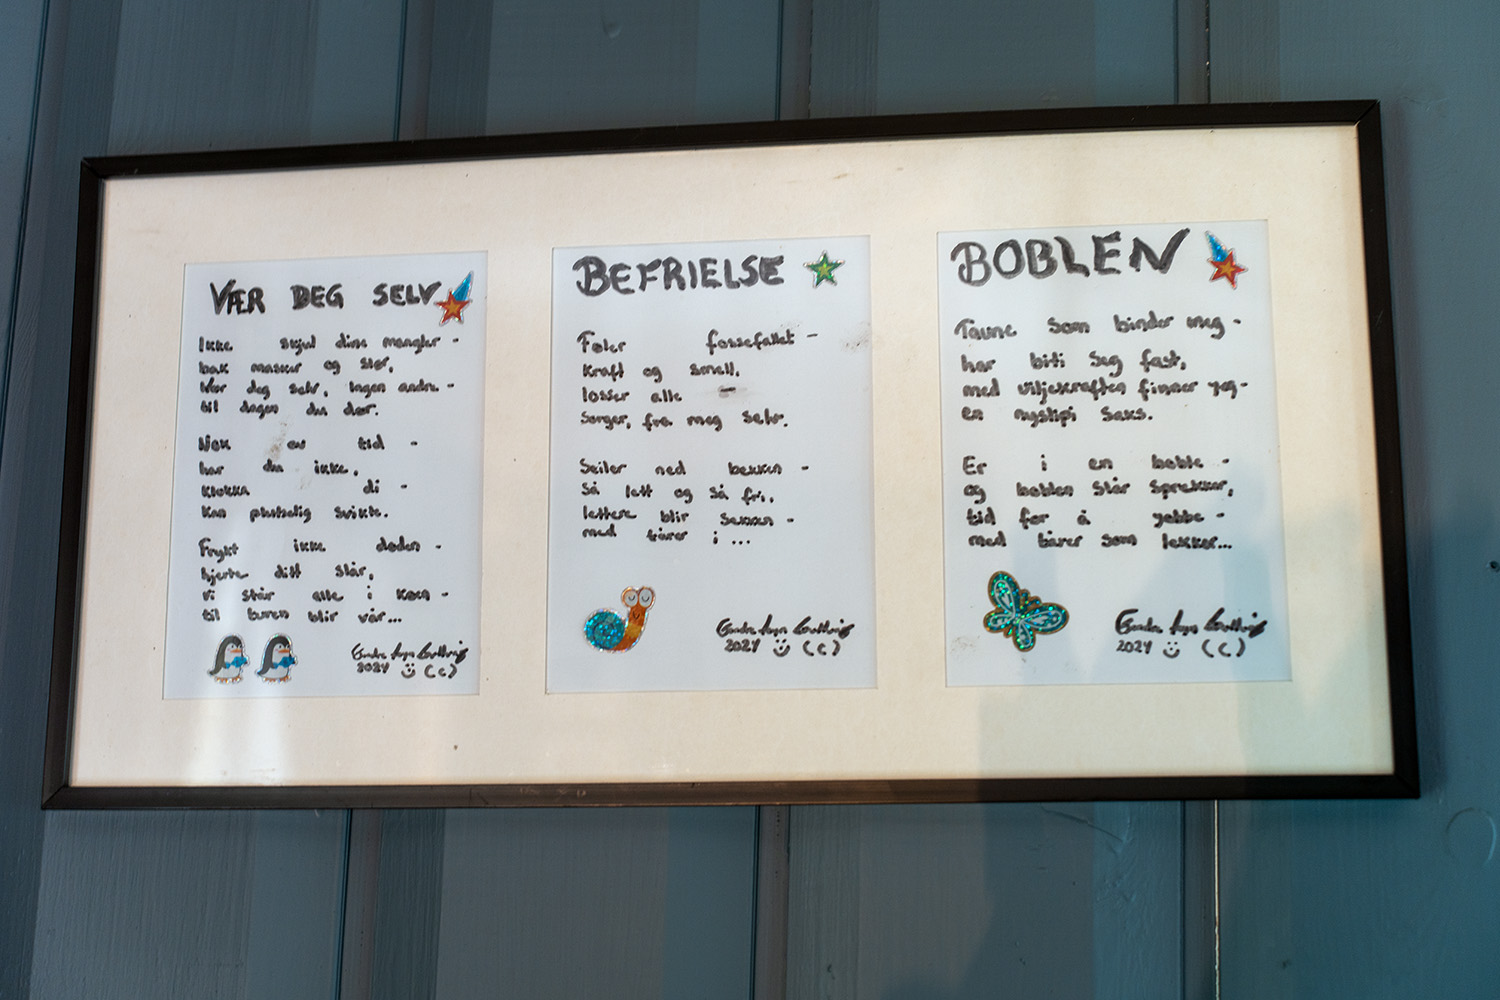 VÆR DEG SELV
Ikke skjul dine mangler -
bak masker og slør,
Vær deg selv, ingen andre -
til dagen du dør.
Nok av tid -
har du ikke,
klokka di -
kan plutselig svikte.
Frykt ikke døden -
hjerte ditt slår,
vi står alle i køen -
til turen blir vår...
2024 (c)
BEFRIELSE
Føler fossefallet -
kraft og smell,
losser alle -
sorger, fra meg selv.
Seiler ned bekken -
så lett og så fri,
lettere blir sekken -
med tårer i ...
2024 (c)
BOBLEN
Tauene som binder meg -
har biti seg fast,
med viljekraften finner jeg -
en nyslipt saks.
Er i en boble -
og boblen slår sprekker,
tid for å jobbe -
med tårer som lekker...
2024 (c)